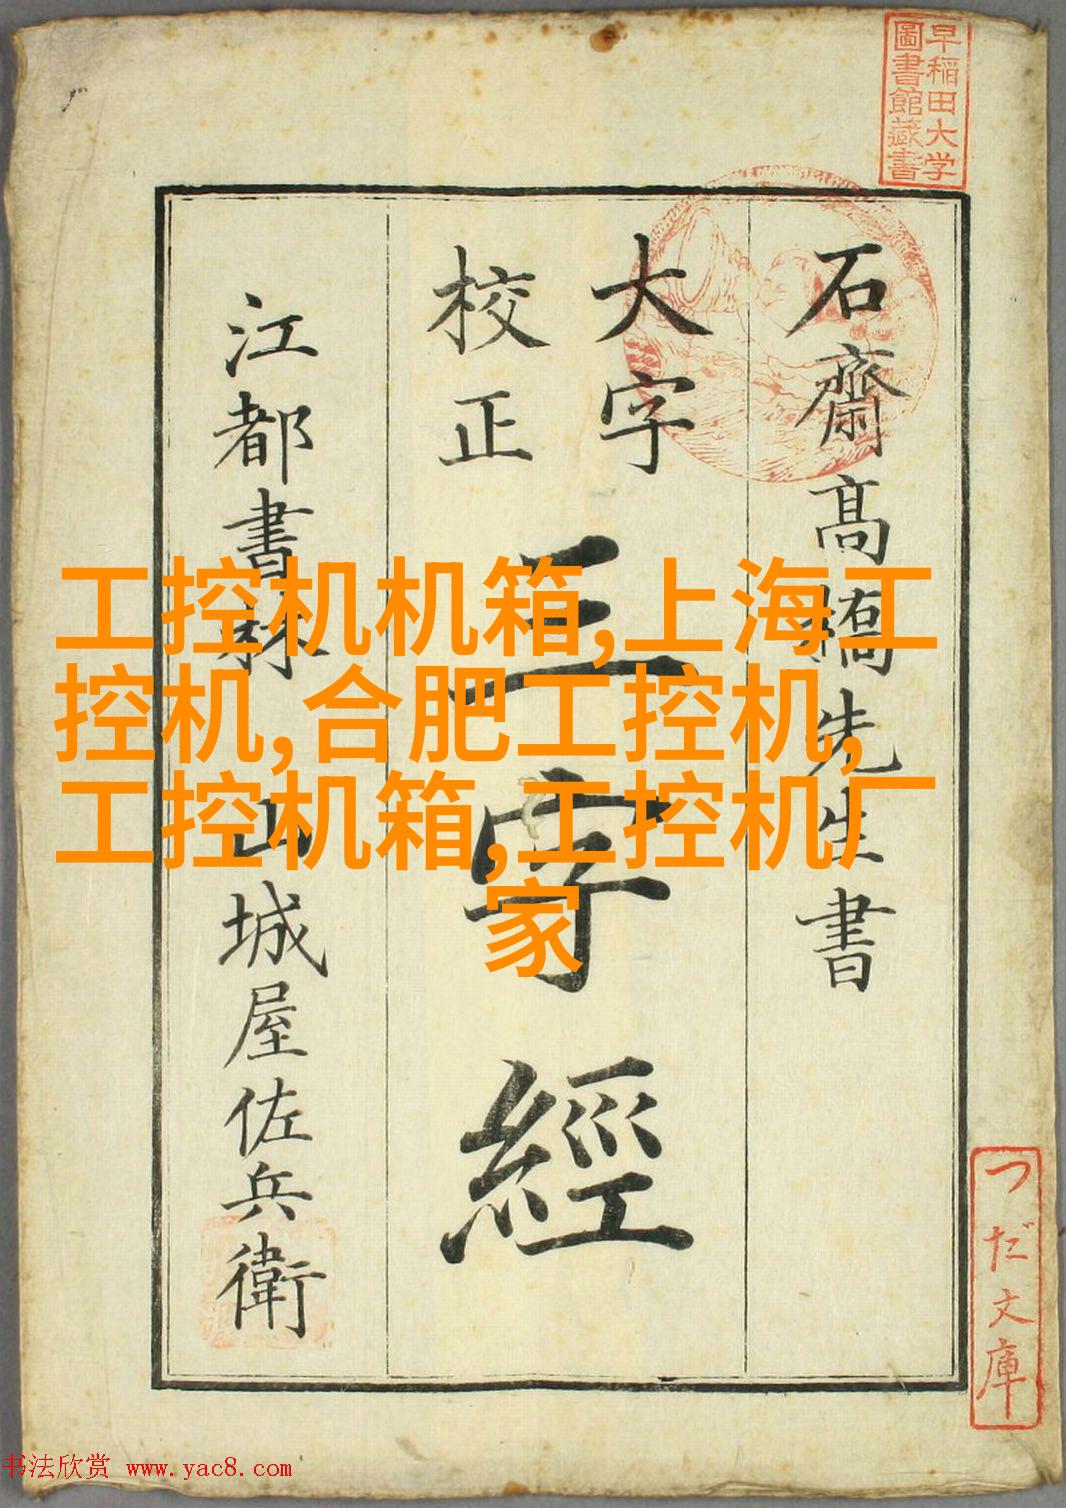 早稲田大学
圖書館藏書
石齋髙橋先生書
大字
校正
三字經
江都書林 山城屋佐兵衛
工控机机箱,上海工
控机,合肥工控机,
工控机箱,工控机厂
家
つだ文庫
书法欣赏 www.yac8.com